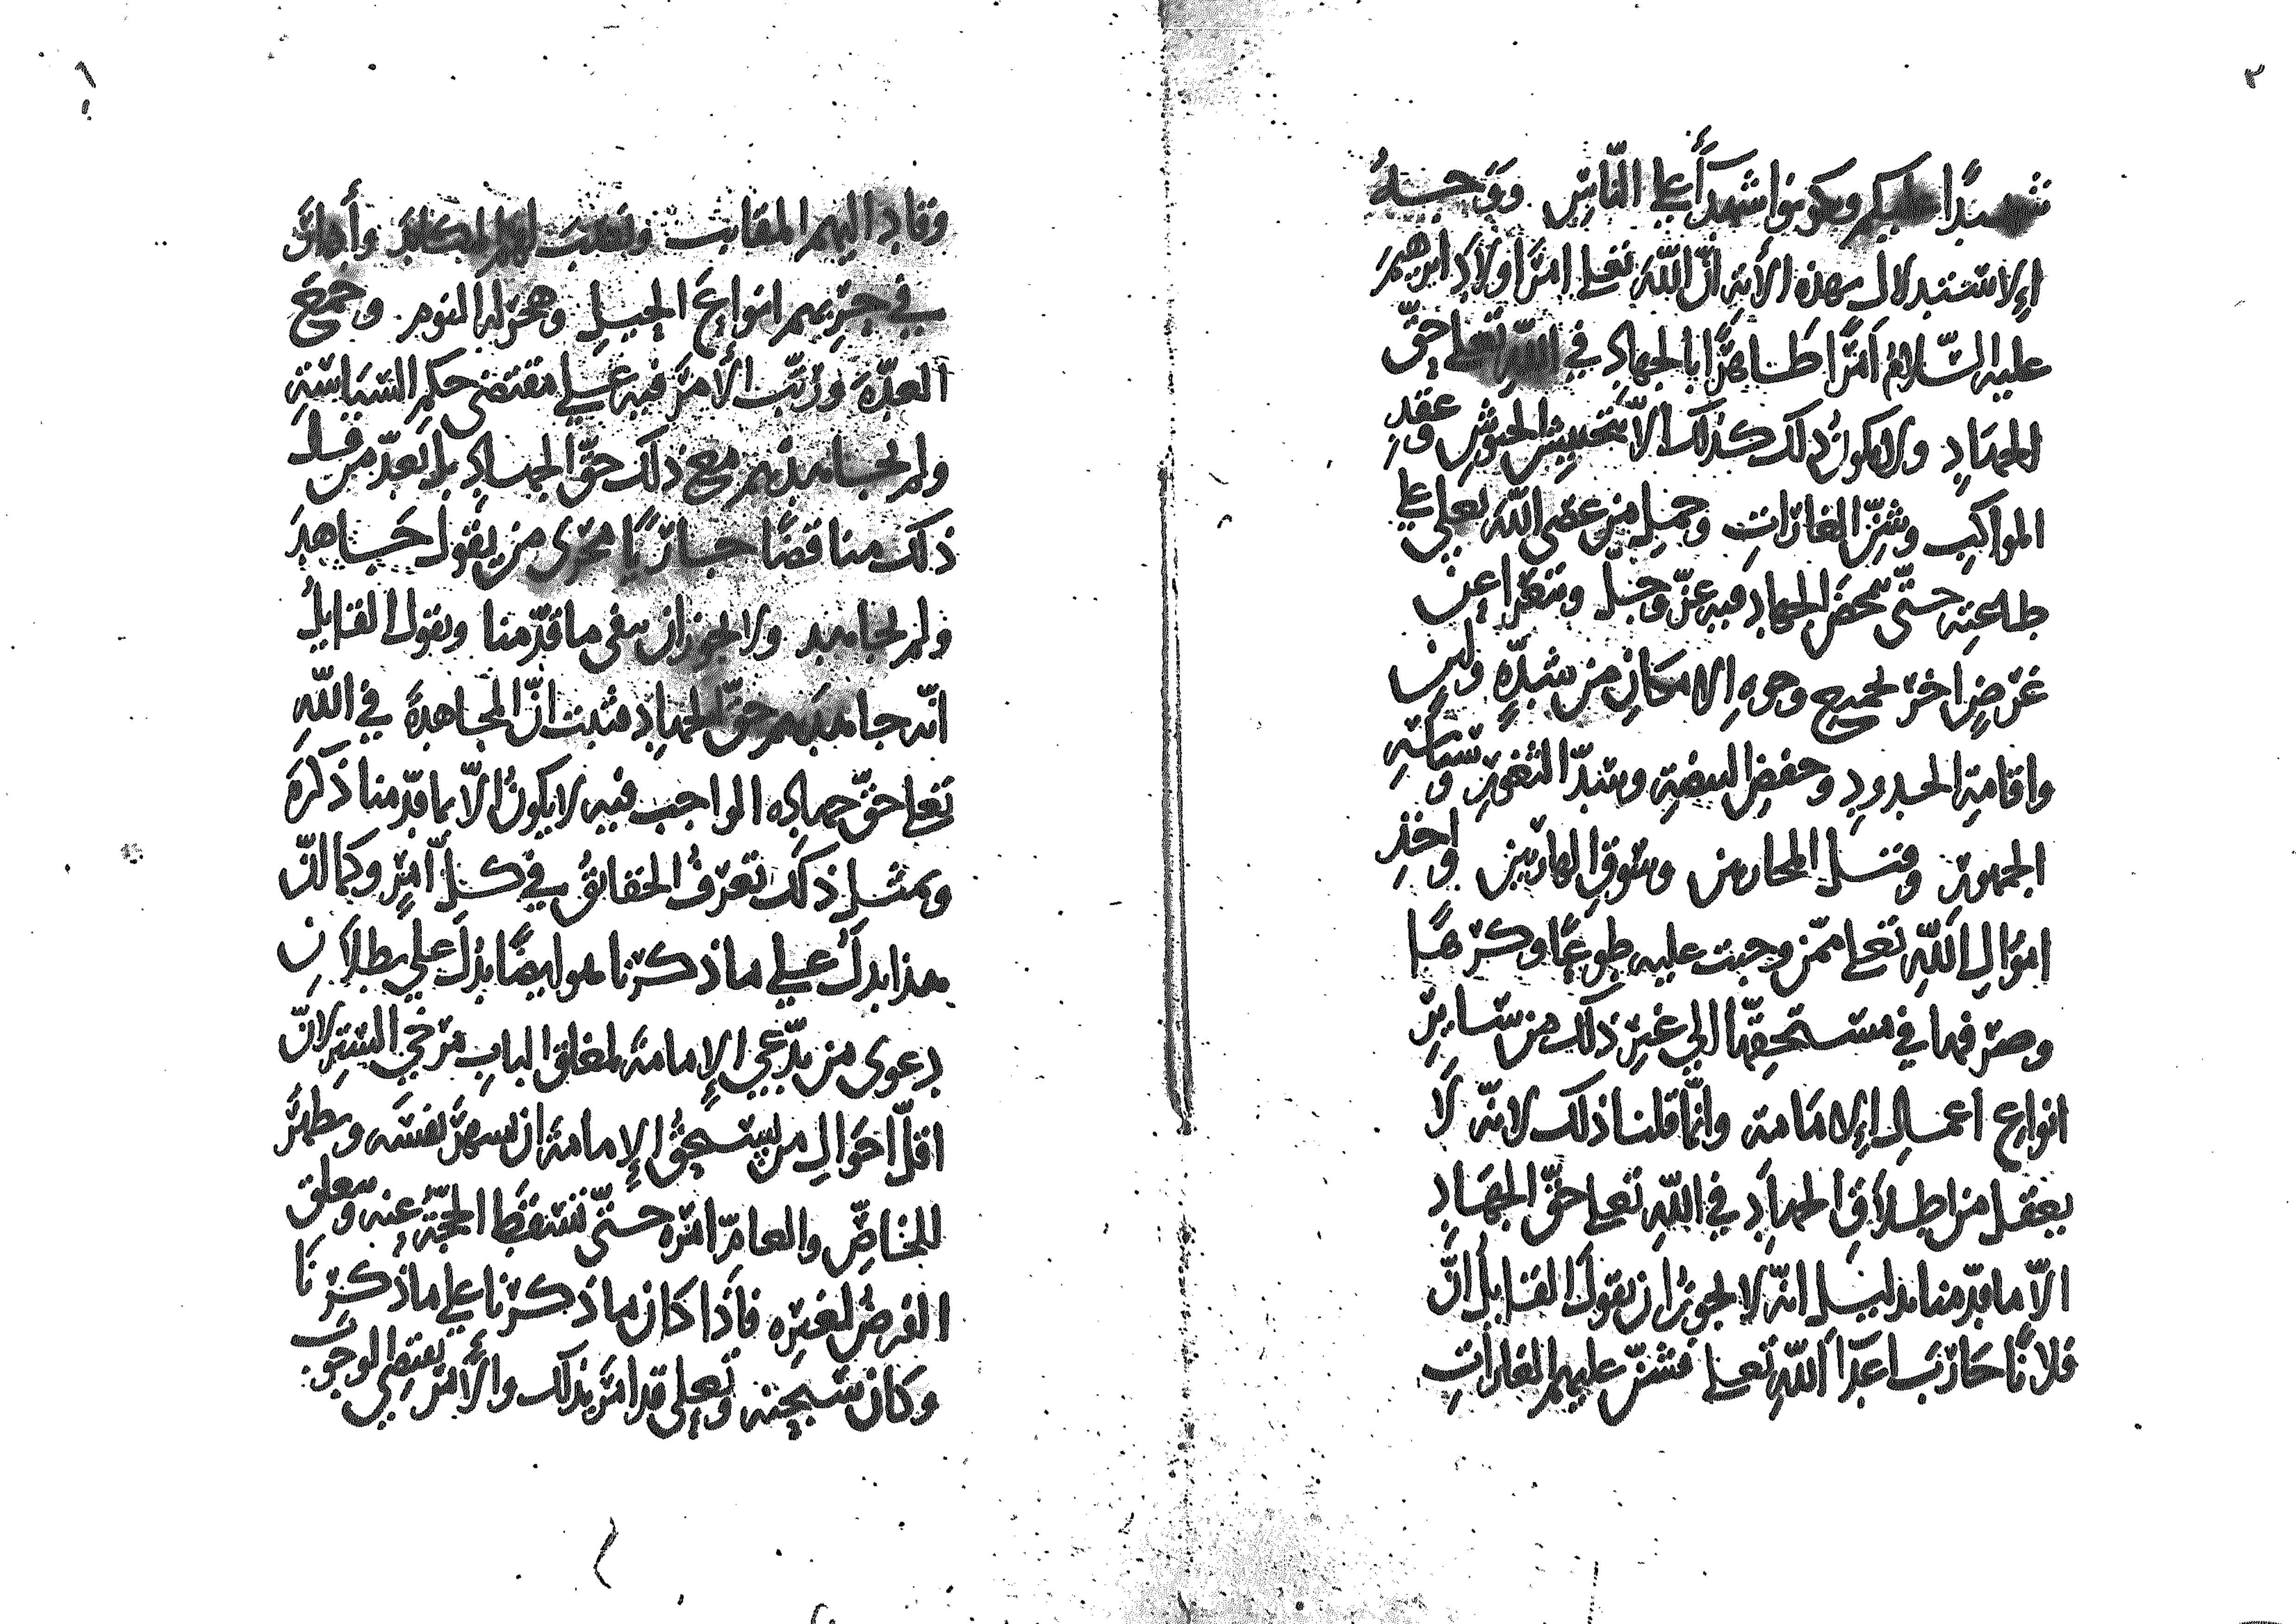 ٣
شهيدًا عليكم وتكونوا شهدآء على النّاس ووجه
الإستدلال بهذه الأية انّ اللّه تعلى امرَ اولاد ابرهيم
عليه السّلام أمرًا ظاهرًا بالجهاد في اللّه تعلى حقّ
الجهادِ ولا يكون ذلك كذلك الاّ بتجييش الجيوش وعقدِ
المواكبِ وشنّ الغاراتِ وحملِ من عصى اللّه تعلى على
طاعته حتّى تمحض الجهاد فيه عزّ وجلّ
غرضٍ اخر لجميع وجوهِ الامكانِ من شدّةٍ ولينٍ
واقامةِ الحدودِ وحفظِ البيضةِ وسدّ الثغورِ وسياسةِ
الجمهورِ وقتل المحاربين وسوقِ الهاربين واخذِ
اموالِ اللّهِ تعلى ممّن وجبت عليه طوعًا وكرهًا
وصرفها في مستحقّها الى غيرِ ذلك من سايرِ
انواع اعمالِ الإمامة وانّما قلنا ذلك لانّه لا
يعقل من اطلاقِ الجهادِ في اللّه تعلى حقّ الجهادِ
الاّ ما قدّمنا بدليل انّه لا يجوزُ ان يقولَ القايلُ انّ
فلانًا حارَبَ اعدآ اللّه تعلى فشنّ عليهم الغاراتِ
وقاد اليهم المقانب ونصَبَ لهم المكائد وأدار
في حربهم انواعَ الحيلِ وهجر له النوم وجمع
العدّة ورتّب الأمر فيه على مقتضى حكم السياسة
ولم يجاهدهم مع ذلك حقّ الجهادِ بل يعدّ من قبل
ذلك مناقضًا جاريًا مجرى من يقول جاهد
ولم يجاهد ولا يجوز ان ينفي ما قدّمنا ويقول القايلُ
انّه جاهدهم حقّ الجهادِ فثبت انّ المجاهدة في اللّهِ
تعلى حقّ جهادِه الواجب فيه لا يكونُ الاّ بما قدّمنا ذكره
وبمثلِ ذلك تعرفُ الحقائقُ في كلّ امرٍ وكما انّ
هذا يدلّ على ما ذكرنا هو ايضًا يدُلّ على بطلانِ
دعوى من يدّعي الإمامة لمغلق البابِ مرخي السترِ لانّ
اقلّ احوالِ من يستحقُّ الإمامة ان يشهرَ نفسَه ويظهرَ
للخاصّ والعامّ امره حتّى تسقط الحجّةُ عنه ويتعلّق
الفرضُ لغيرِه فاذا كان ما ذكرنا على ما ذكرنا
وكان سبحنه وتعلى قد امرَ بذلك والأمر يقتضي الوجوب